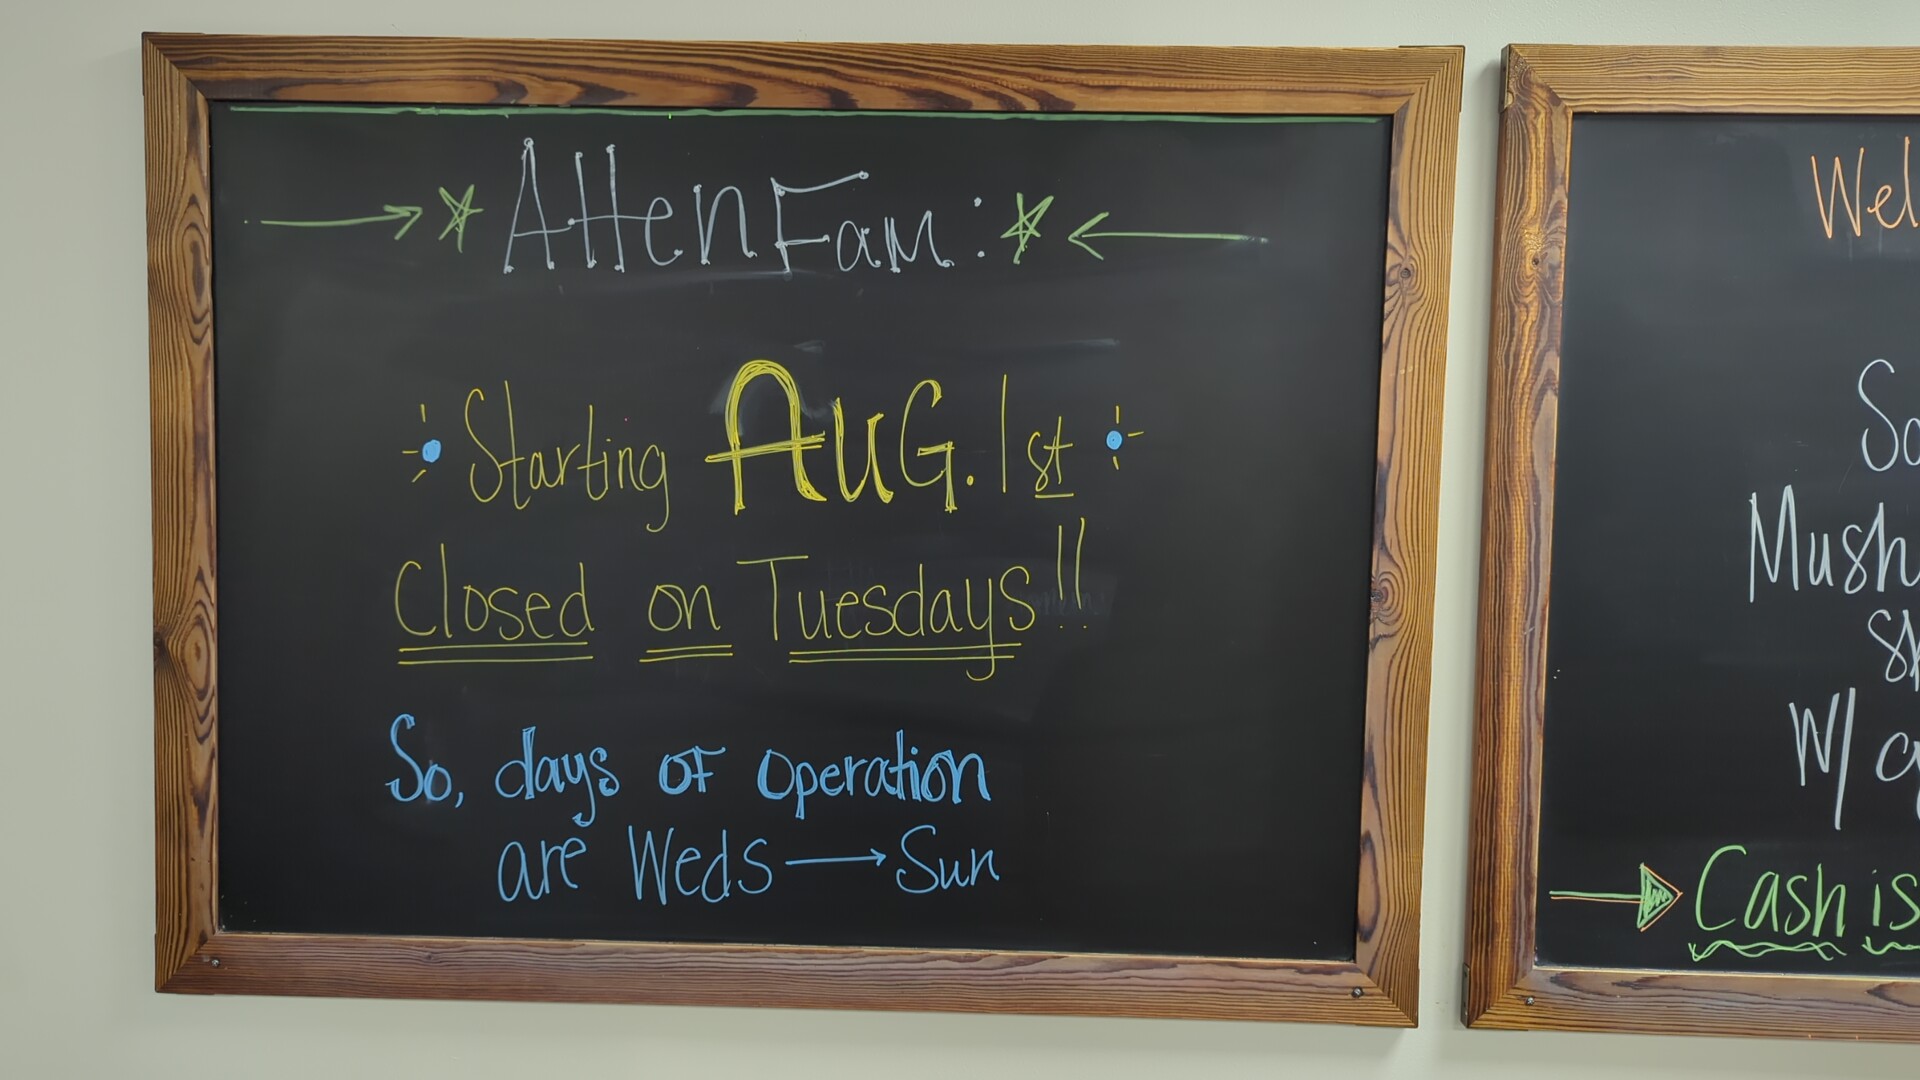 Atten Fam:
Starting AUG. 1st
Closed on Tuesdays!!
So, days of operation
are Weds → Sun
Wel
So
Mush
W/
Cash is